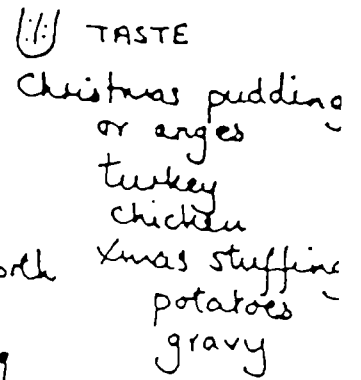 TASTE
Christmas pudding
or anges
turkey
chicken
Xmas stuffing
potatoes
gravy